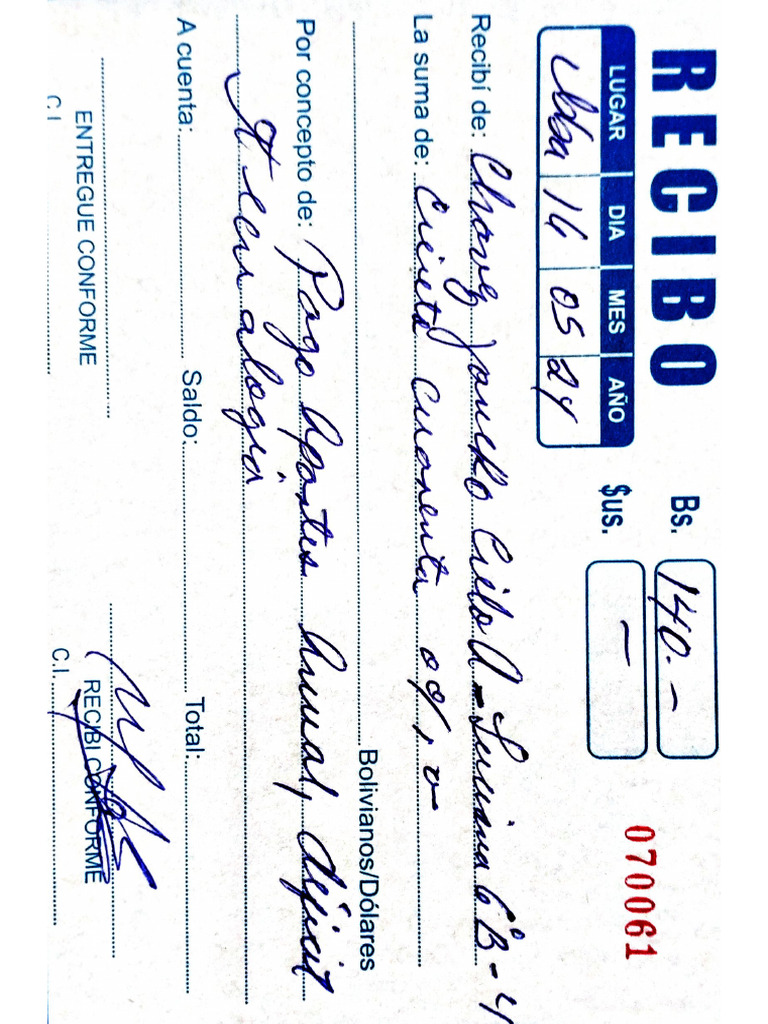 RECIBO
Bs. 140.-
$us. -
070061
LUGAR DIA MES AÑO
16 05 24
Recibí de: Chavez Cielo A - Luciana 6°B - 4
La suma de: Ciento cuarenta 00/
Bolivianos/Dólares
Por concepto de: Pago Aportes Anual, déficit
A cuenta: Saldo: Total:
ENTREGUE CONFORME
C.I.
RECIBI CONFORME
C.I.